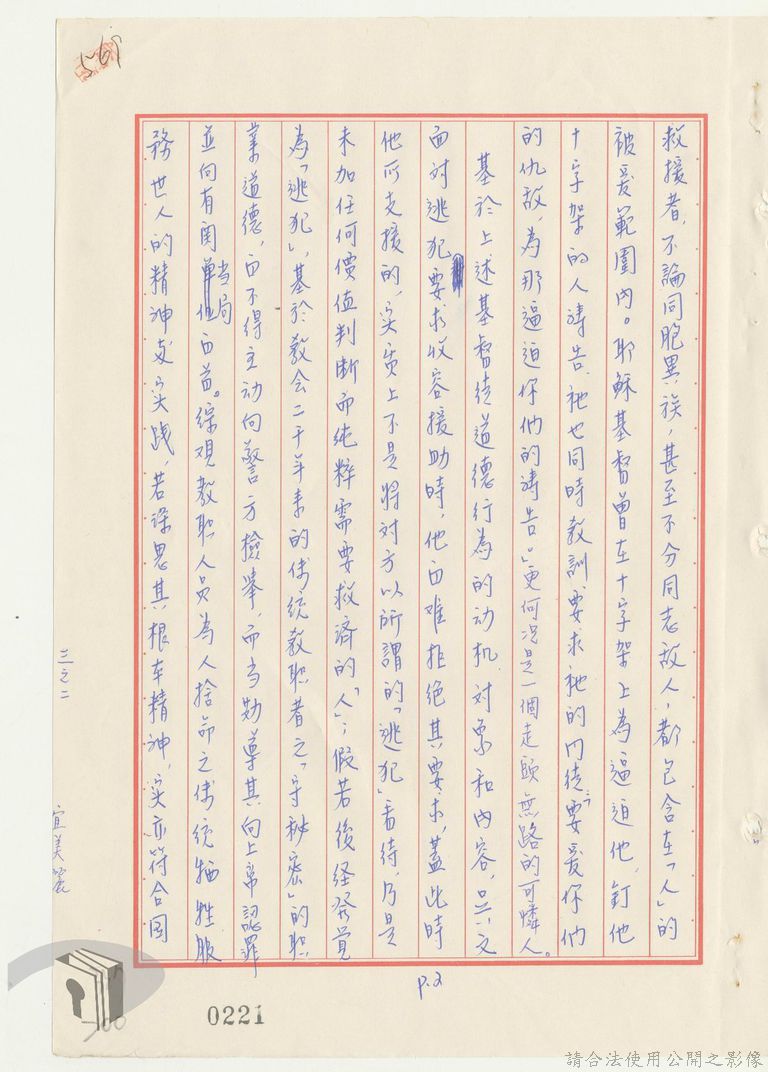 569
救援者，不論同胞異族，甚至不分同志敌人，都包含在「人」的
被爱範圍內。耶穌基督曾在十字架上為逼迫他，釘他
十字架的人禱告，祂也同時教訓要求祂的門徒「要爱你们
的仇敌，為那逼迫你们的禱告。」更何况是一個走頭無路的可憐人。
基於上述基督徒道德行為的动机，对象和内容，
面对逃犯要求收容援助時，他自难拒绝其要求，蓋此時
他所支援的，实质上不是将对方以所謂的「逃犯」看待，乃是
未加任何價值判断而纯粹需要救济的「人」；假若後经発覚
為「逃犯」，基於教会二千年来的传统教职者之「守秘密」的职
業道德，自不得主动向警方檢举，而当勸導其向上帝認罪
並向有関当局自首。综观教职人员為人捨命之传统牺牲服
務世人的精神及实践，若深思其根本精神，实亦符合国
三之二
宜美震
P.2
0221
請合法使用公開之影像